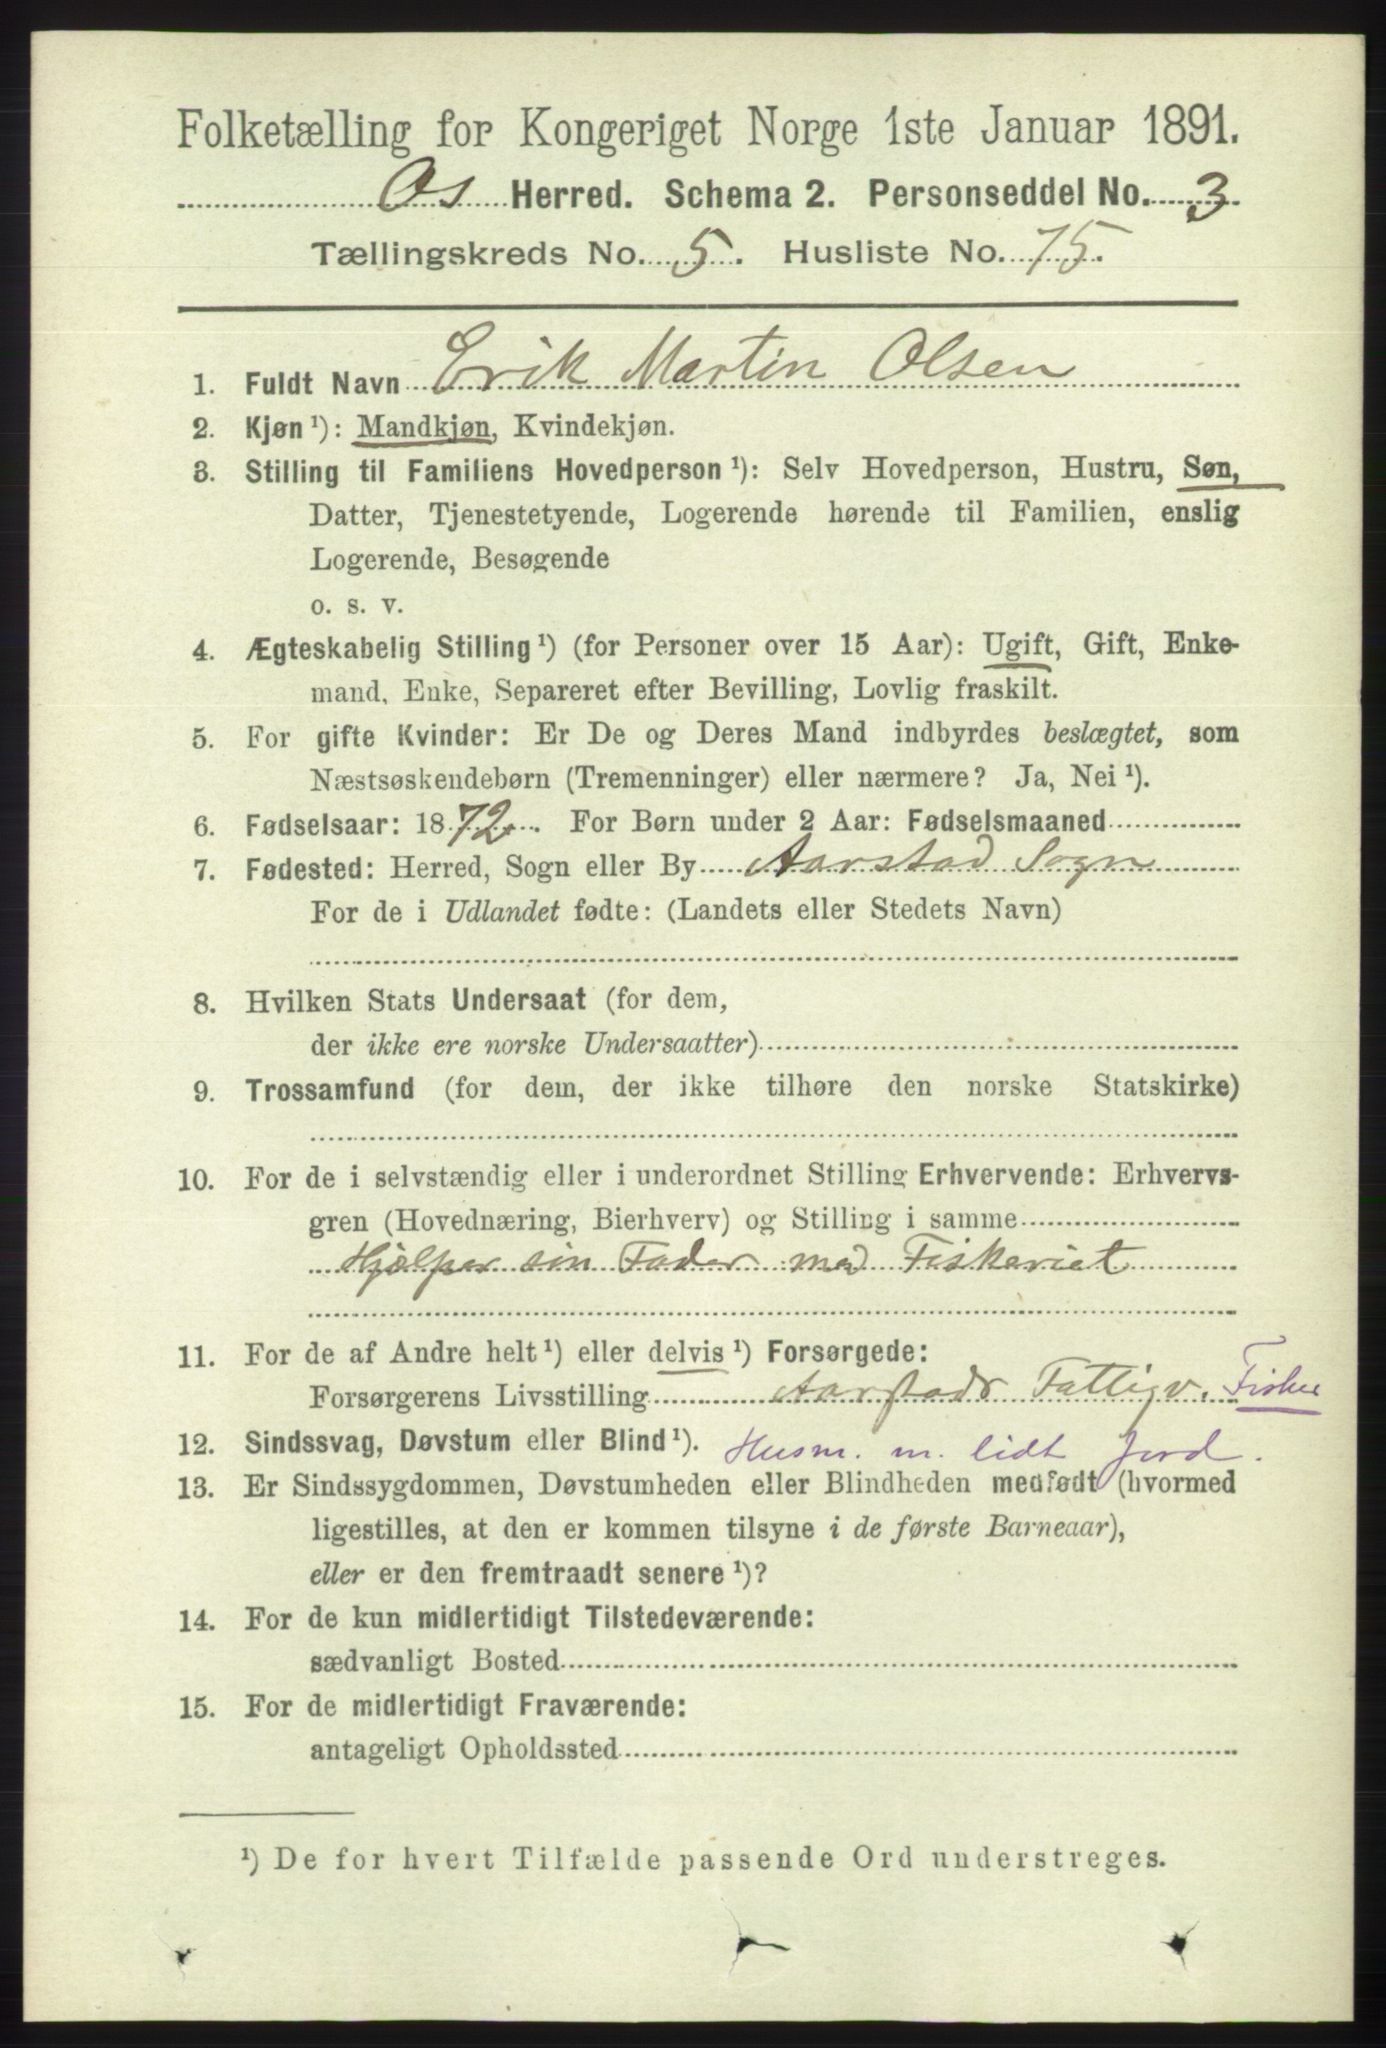 Folketælling for Kongeriget Norge 1ste Januar 1891.
Os Herred. Schema 2. Personseddel No. 3
Tællingskreds No. 5. Husliste No. 75.
1. Fuldt Navn Erik Martin Olsen
2. Kjøn ¹): Mandkjøn, Kvindekjøn.
3. Stilling til Familiens Hovedperson ¹): Selv Hovedperson, Hustru, Søn,
Datter, Tjenestetyende, Logerende hørende til Familien, enslig
Logerende, Besøgende
o. s. v.
4. Ægteskabelig Stilling ¹) (for Personer over 15 Aar): Ugift, Gift, Enke-
mand, Enke, Separeret efter Bevilling, Lovlig fraskilt.
5. For gifte Kvinder: Er De og Deres Mand indbyrdes beslægtet, som
Næstsøskendebørn (Tremenninger) eller nærmere? Ja, Nei ¹).
6. Fødselsaar: 1872. For Børn under 2 Aar: Fødselsmaaned
7. Fødested: Herred, Sogn eller By Aarstad Sogn
For de i Udlandet fødte: (Landets eller Stedets Navn)
8. Hvilken Stats Undersaat (for dem,
der ikke ere norske Undersaatter)
9. Trossamfund (for dem, der ikke tilhøre den norske Statskirke)
10. For de i selvstændig eller i underordnet Stilling Erhvervende: Erhvervs-
gren (Hovednæring, Bierhverv) og Stilling i samme
Hjælper sin Fader med Fiskeriet
11. For de af Andre helt ¹) eller delvis ¹) Forsørgede:
Forsørgerens Livsstilling Aarstads Fattigv. Fisker
12. Sindssvag, Døvstum eller Blind ¹). Husm. m. lidt Jord.
13. Er Sindssygdommen, Døvstumheden eller Blindheden medfødt (hvormed
ligestilles, at den er kommen tilsyne i de første Barneaar),
eller er den fremtraadt senere ¹)?
14. For de kun midlertidigt Tilstedeværende:
sædvanligt Bosted
15. For de midlertidigt Fraværende:
antageligt Opholdssted
¹) De for hvert Tilfælde passende Ord understreges.